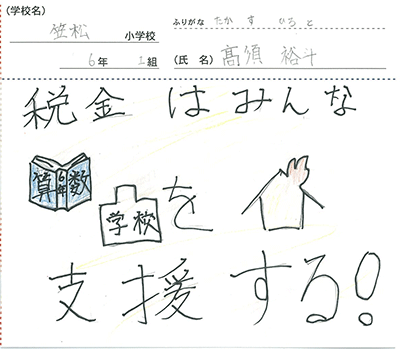 (学校名)
笠松 小学校
ふりがな たか す ひろ と
6年 1組 (氏名) 髙須 裕斗
税金 はみんな
算 6年 数
学校 を
支援する!